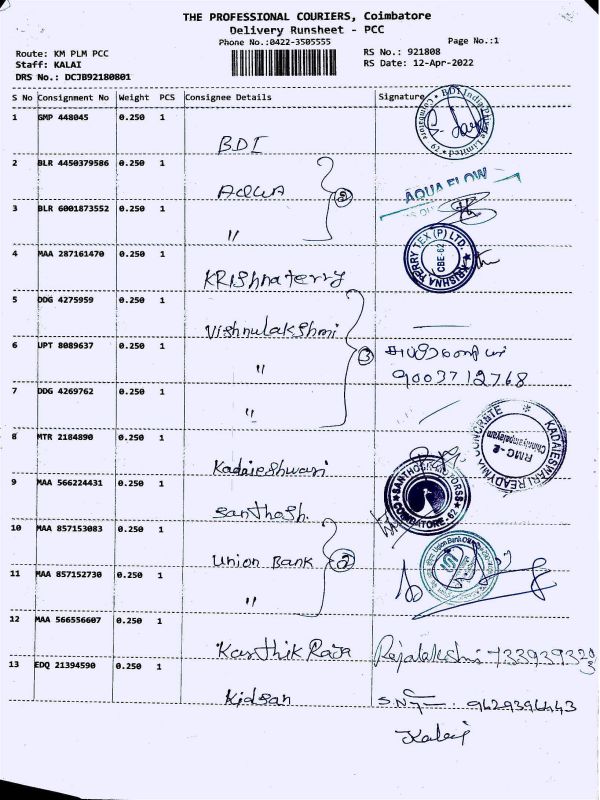 THE PROFESSIONAL COURIERS, Coimbatore
Delivery Runsheet - PCC
Phone No.:0422-3505555
Page No.:1
Route: KM PLM PCC
RS No.: 921808
Staff: KALAI
RS Date: 12-Apr-2022
DRS No.: DCJB92180801
S No Consignment No Weight PCS Consignee Details Signature
1 GMP 448045 0.250 1
BDI
2 BLR 4450379586 0.250 1
Acqua
AQUA FLOW
3 BLR 6001873552 0.250 1
"
2
4 MAA 287161470 0.250 1
Krishna terry
KRISHNA TERRY TEX (P) LTD.
CBE-62
5 DDG 4275959 0.250 1
Vishnulakshmi
6 UPT 8089637 0.250 1
"
3
9003712768
7 DDG 4269762 0.250 1
"
8 MTR 2184890 0.250 1
Kadaieshwari
KADAIESWARI READYMIX CONCRETE
RMC-2
Chinniyampalayam
9 MAA 566224431 0.250 1
Santhosh.
COIMBATORE-62
10 MAA 857153083 0.250 1
Union Bank
2
11 MAA 857152730 0.250 1
"
12 MAA 566556607 0.250 1
Karthik Raja
Rajalakshmi
13 EDQ 21394590 0.250 1
Kidsan
Kalai